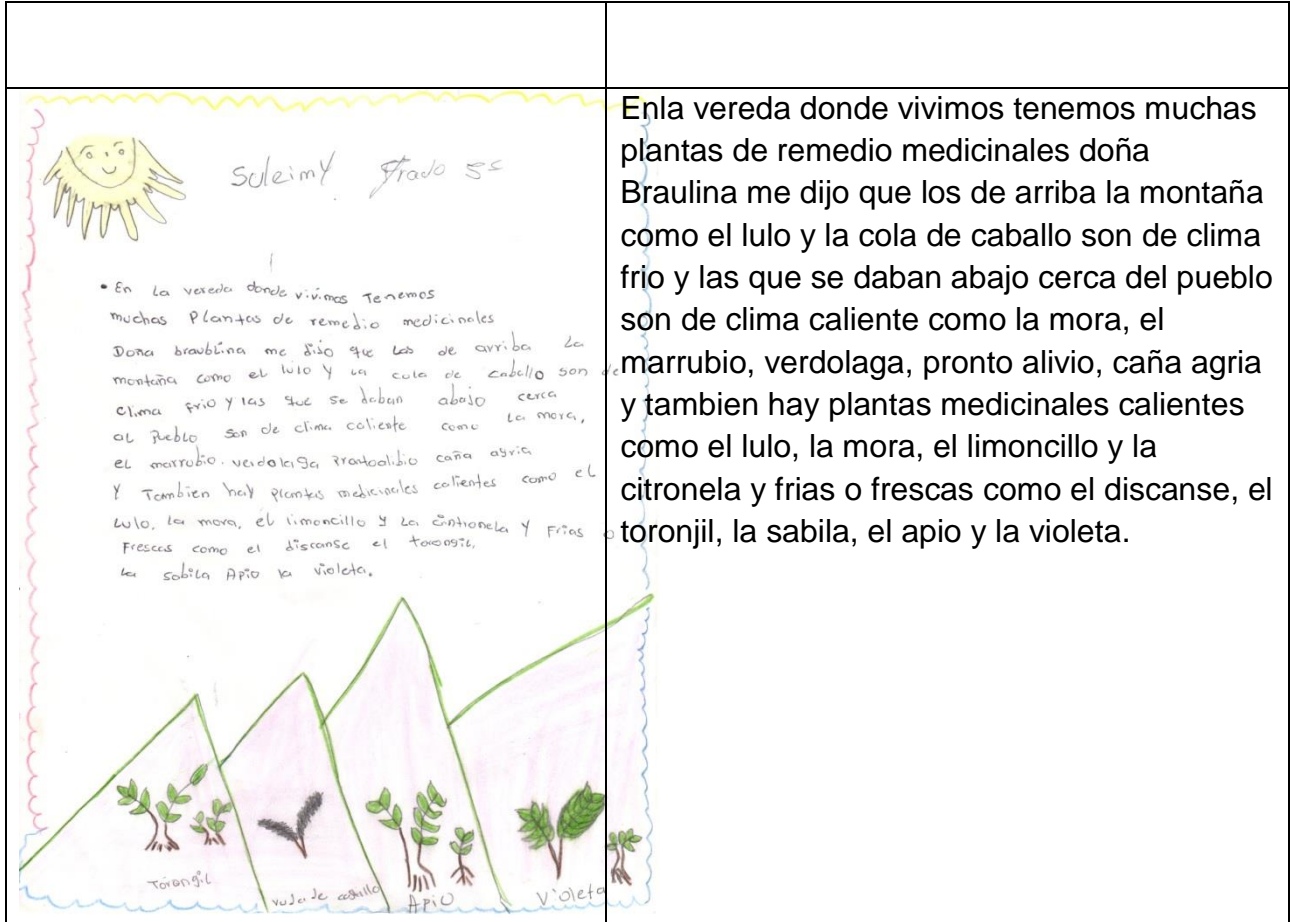 Suleimy grado 5º
• En la vereda donde vivimos Tenemos
muchas Plantas de remedio medicinales
Doña braublina me dijo que los de arriba la
montaña como el lulo y la cola de caballo son de
clima frio y las que se daban abajo cerca
al Pueblo son de clima caliente como la mora,
el marrubio. verdolaga Prontoalibio caña agria
y Tambien hay plantas medicinales calientes como el
Lulo, la mora, el limoncillo y la cintronela y frias o
Frescas como el discanse el torongil,
la sabila Apio la violeta.
Torongil
de caballo
Apio
Violeta
Enla vereda donde vivimos tenemos muchas
plantas de remedio medicinales doña
Braulina me dijo que los de arriba la montaña
como el lulo y la cola de caballo son de clima
frio y las que se daban abajo cerca del pueblo
son de clima caliente como la mora, el
marrubio, verdolaga, pronto alivio, caña agria
y tambien hay plantas medicinales calientes
como el lulo, la mora, el limoncillo y la
citronela y frias o frescas como el discanse, el
toronjil, la sabila, el apio y la violeta.